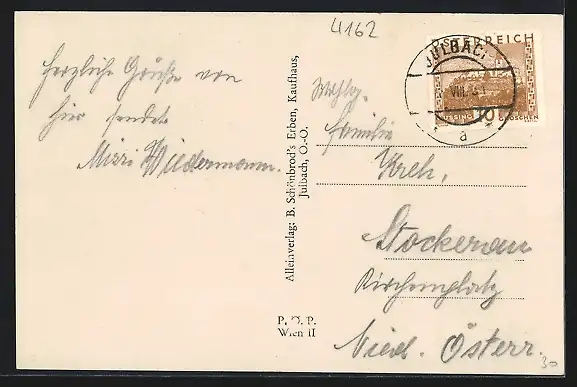 4162
herzliche Grüße von
hier sendet
Mizzi Wiedermann.
Alleinverlag: B. Schönbrod's Erben, Kaufhaus,
Julbach, O.-Ö.
P. O. P.
Wien II
ÖSTERREICH
JULBACH
VIII. 31
a
10 GROSCHEN
Familie
Kreh,
Stockerau
Kirchenplatz
Nied. Österr.
30